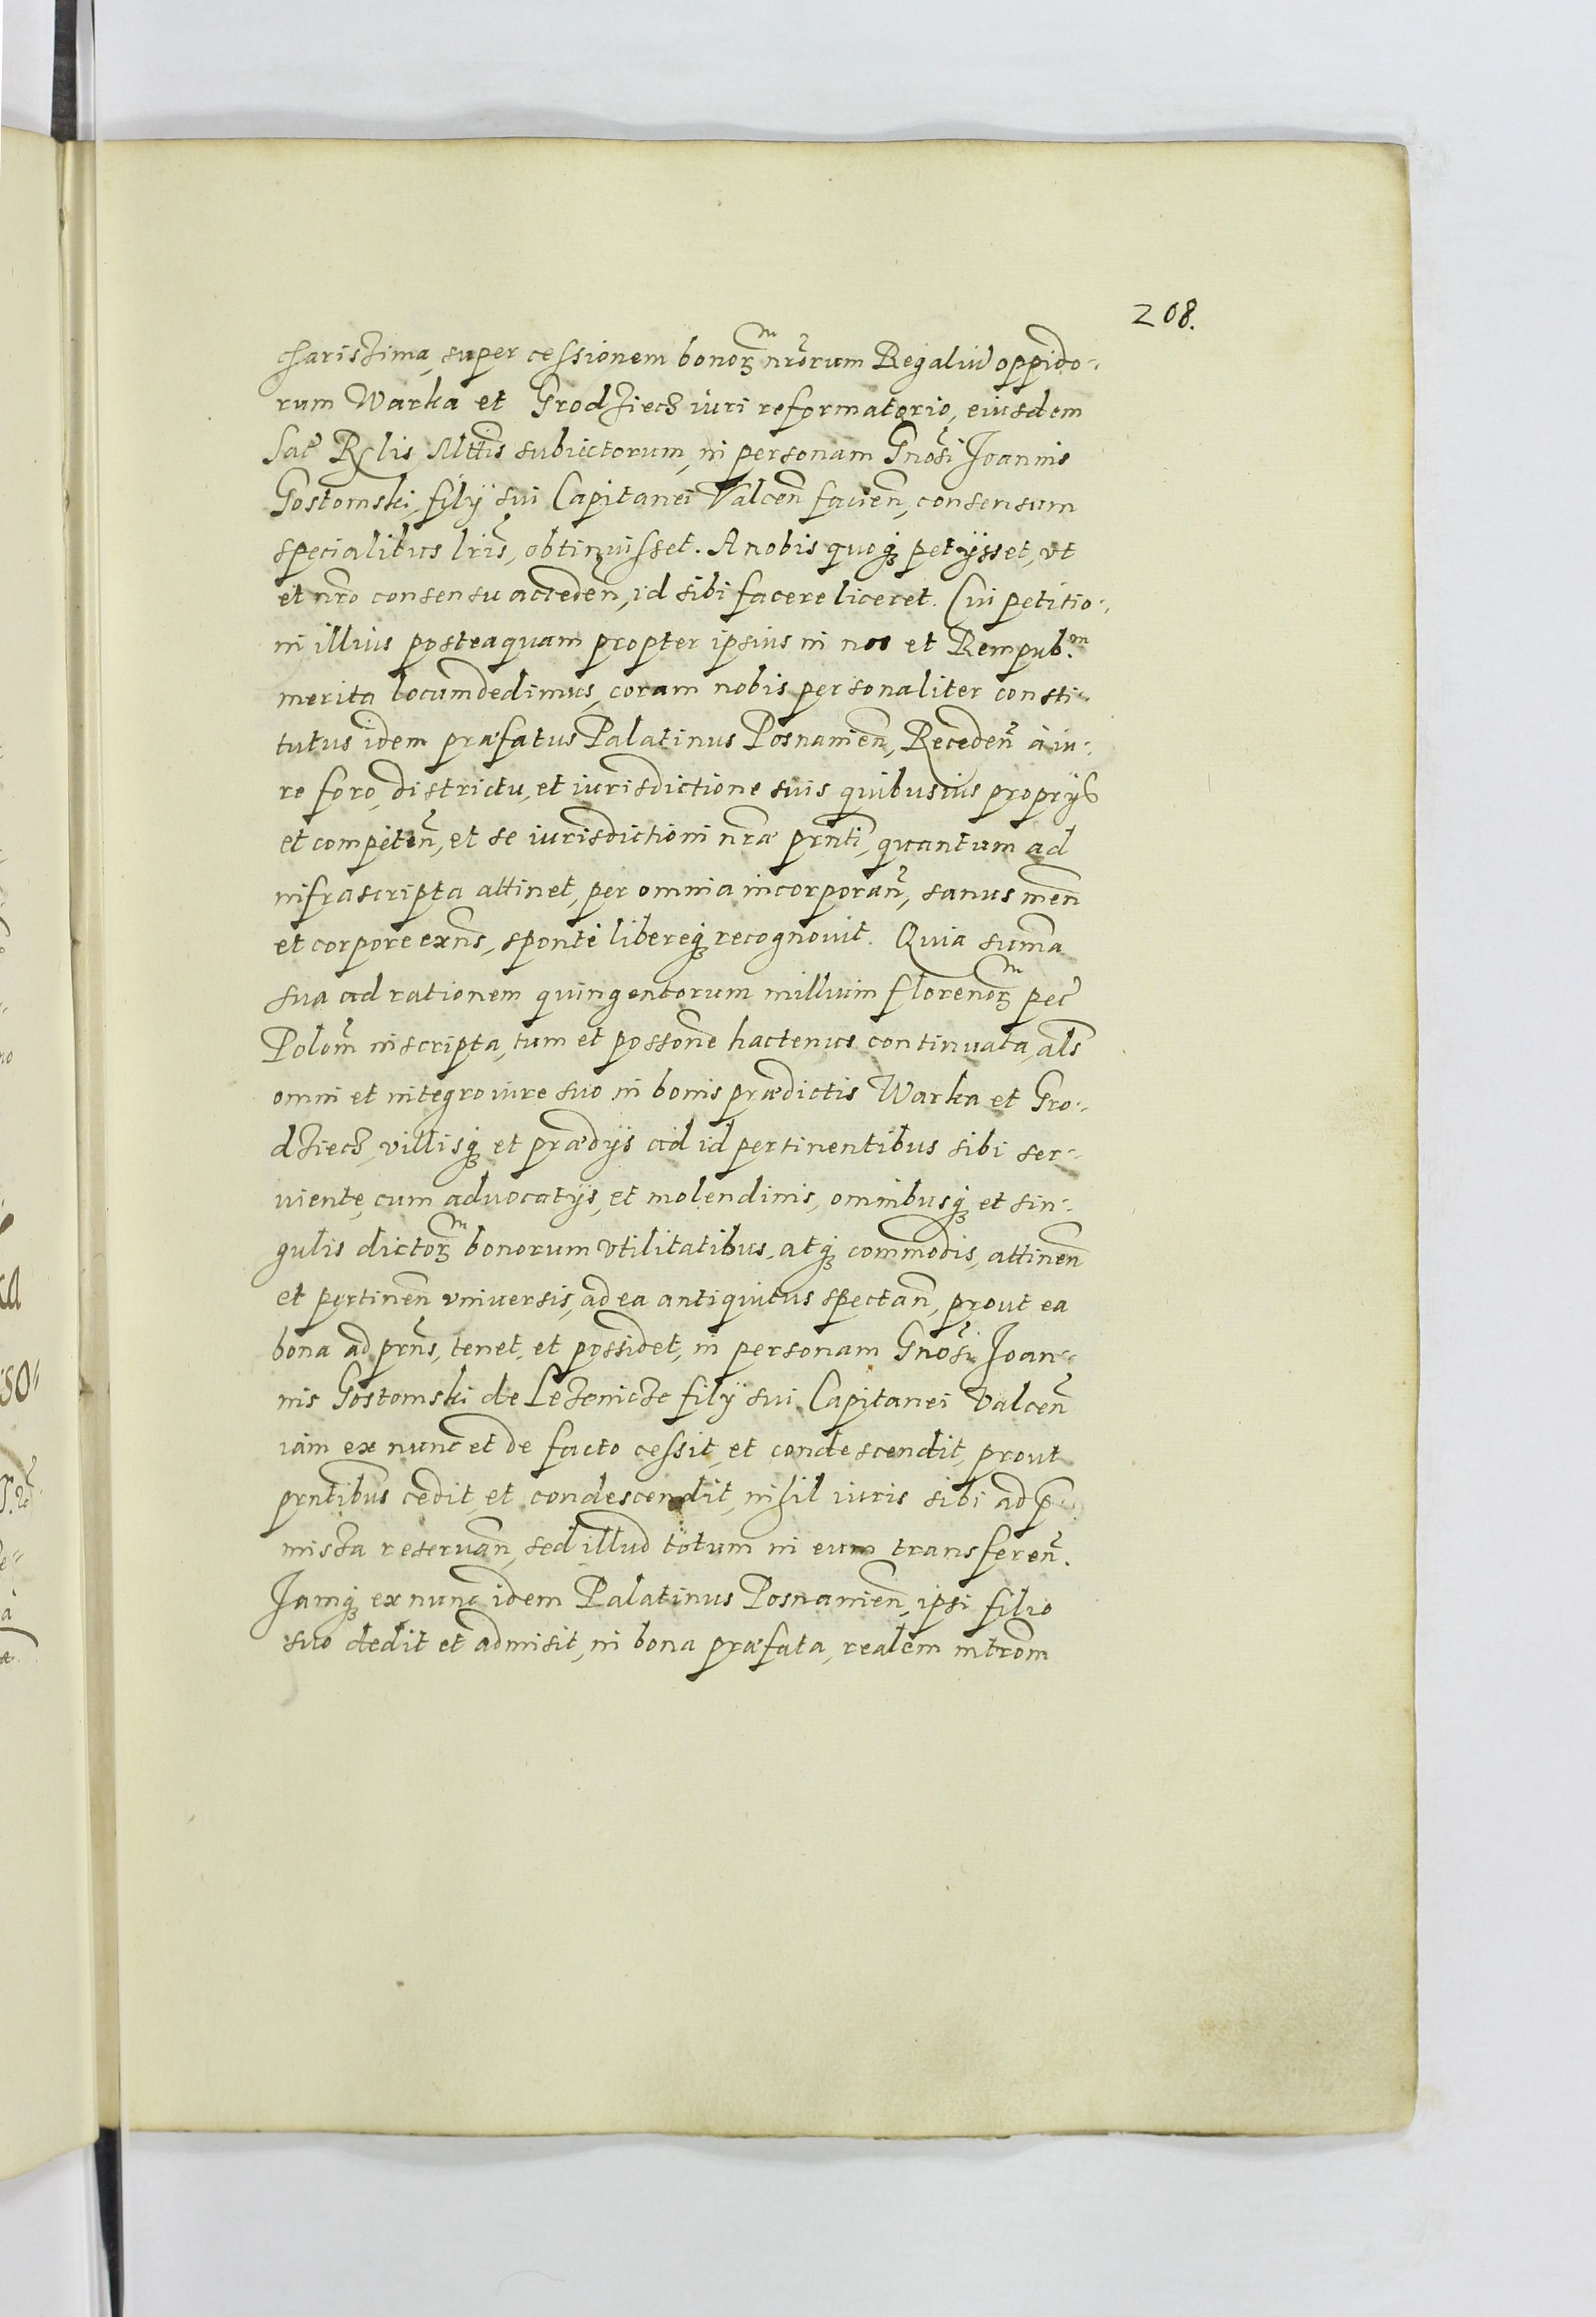 208.
charissima, super cessionem bonor͂m nr̃orum Regaliũ oppido-
rum Warka et Grodziecz iuri reformatorio, eiusdem
Sac̃ R̃lis Mttis subiectorum, in personam Gnõsi Joannis
Gostomski, filÿ sui Capitanei Valceñ facieñ, consensum
specialibus lr̃is, obtinuisset. A nobis quoqꝫ petÿsset, vt
et nr̃o consensu accedeñ, id sibi facere liceret. Cui petitio-
ni illius posteaquam propter ipsius in nos et Rempub.m
merita locum dedimus, coram nobis personaliter consti-
tutus idem præfatus Palatinus Posnanieñ, Recedeñ à iu-
re foro, districtu, et iurisdictione suis quibusuis proprÿs
et competeñ, et se iurisdictioni nr̃æ prñti, quantum ad
infrascripta attinet, per omnia incorporañ, sanus meñ
et corpore exñs, sponte libereqꝫ recognouit. Quia summa
sua ad rationem quingentorum millium florenor͂m pec̃
Poloñ inscripta, tum et possoñe hactenus continuata, als̃
omni et integro iure suo in bonis prædictis Warka et Gro-
dziecz, villisqꝫ et prædÿs ad id pertinentibus sibi ser-
uiente, cum aduocatÿs, et molendinis, omnibusqꝫ et sin-
gulis dictor͂m bonorum vtilitatibus, atqꝫ commodis, attineñ
et pertineñ vniuersis, ad ea antiquitus spectañ, prout ea
bona ad prñs, tenet, et possidet, in personam Gnõsi Joan-
nis Gostomski de Lezenicze filÿ sui Capitanei Valceñ
iam ex nunc et de facto cessit, et condescendit, prout
prñtibus cedit, et condescendit, nihil iuris sibi ad p̃-
missa reseruañ, sed illud totum in eum transfereñ.
Jamqꝫ ex nunc idem Palatinus Posnanieñ, ipsi filio
suo dedit et admisit, in bona præfata, realem introm̃